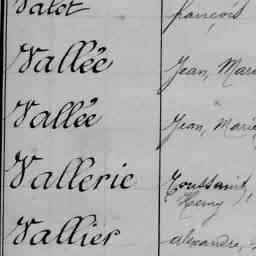 Valot françois
Vallée Jean, Mari
Vallée Jean, Marie
Vallerie Toussaint,
Henry
Vallier alexandre,